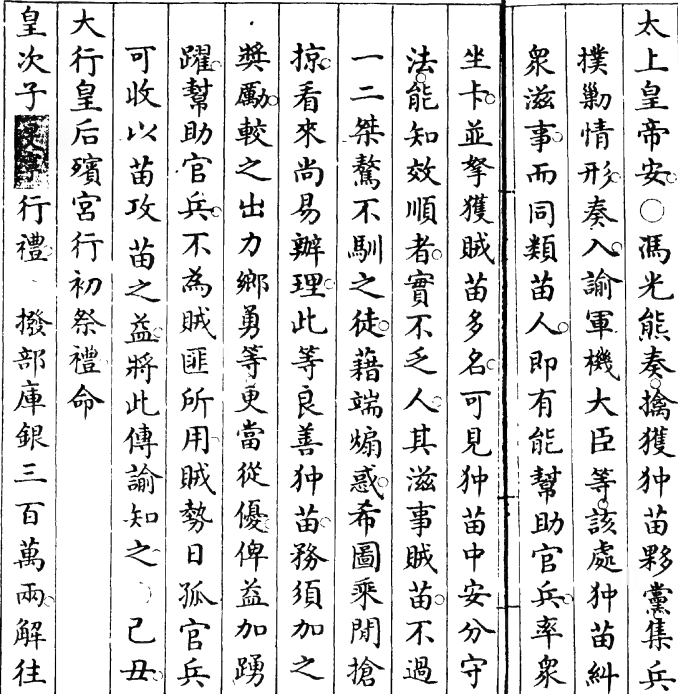 太上皇帝安○馮光熊奏擒獲狆苗夥黨集兵
撲勦情形奏入諭軍機大臣等該處狆苗糾
衆滋事而同類苗人即有能幫助官兵率衆
坐卡並拏獲賊苗多名可見狆苗中安分守
法能知效順者實不乏人其滋事賊苗不過
一二桀驁不馴之徒藉端煽惑希圖乘間搶
掠看來尚易辦理此等良善狆苗務須加之
奬勵較之出力鄉勇等更當從優俾益加踴
躍幫助官兵不為賊匪所用賊勢日孤官兵
可收以苗攻苗之益將此傳諭知之○己丑
大行皇后殯宮行初祭禮命
皇次子行禮○撥部庫銀三百萬兩解往